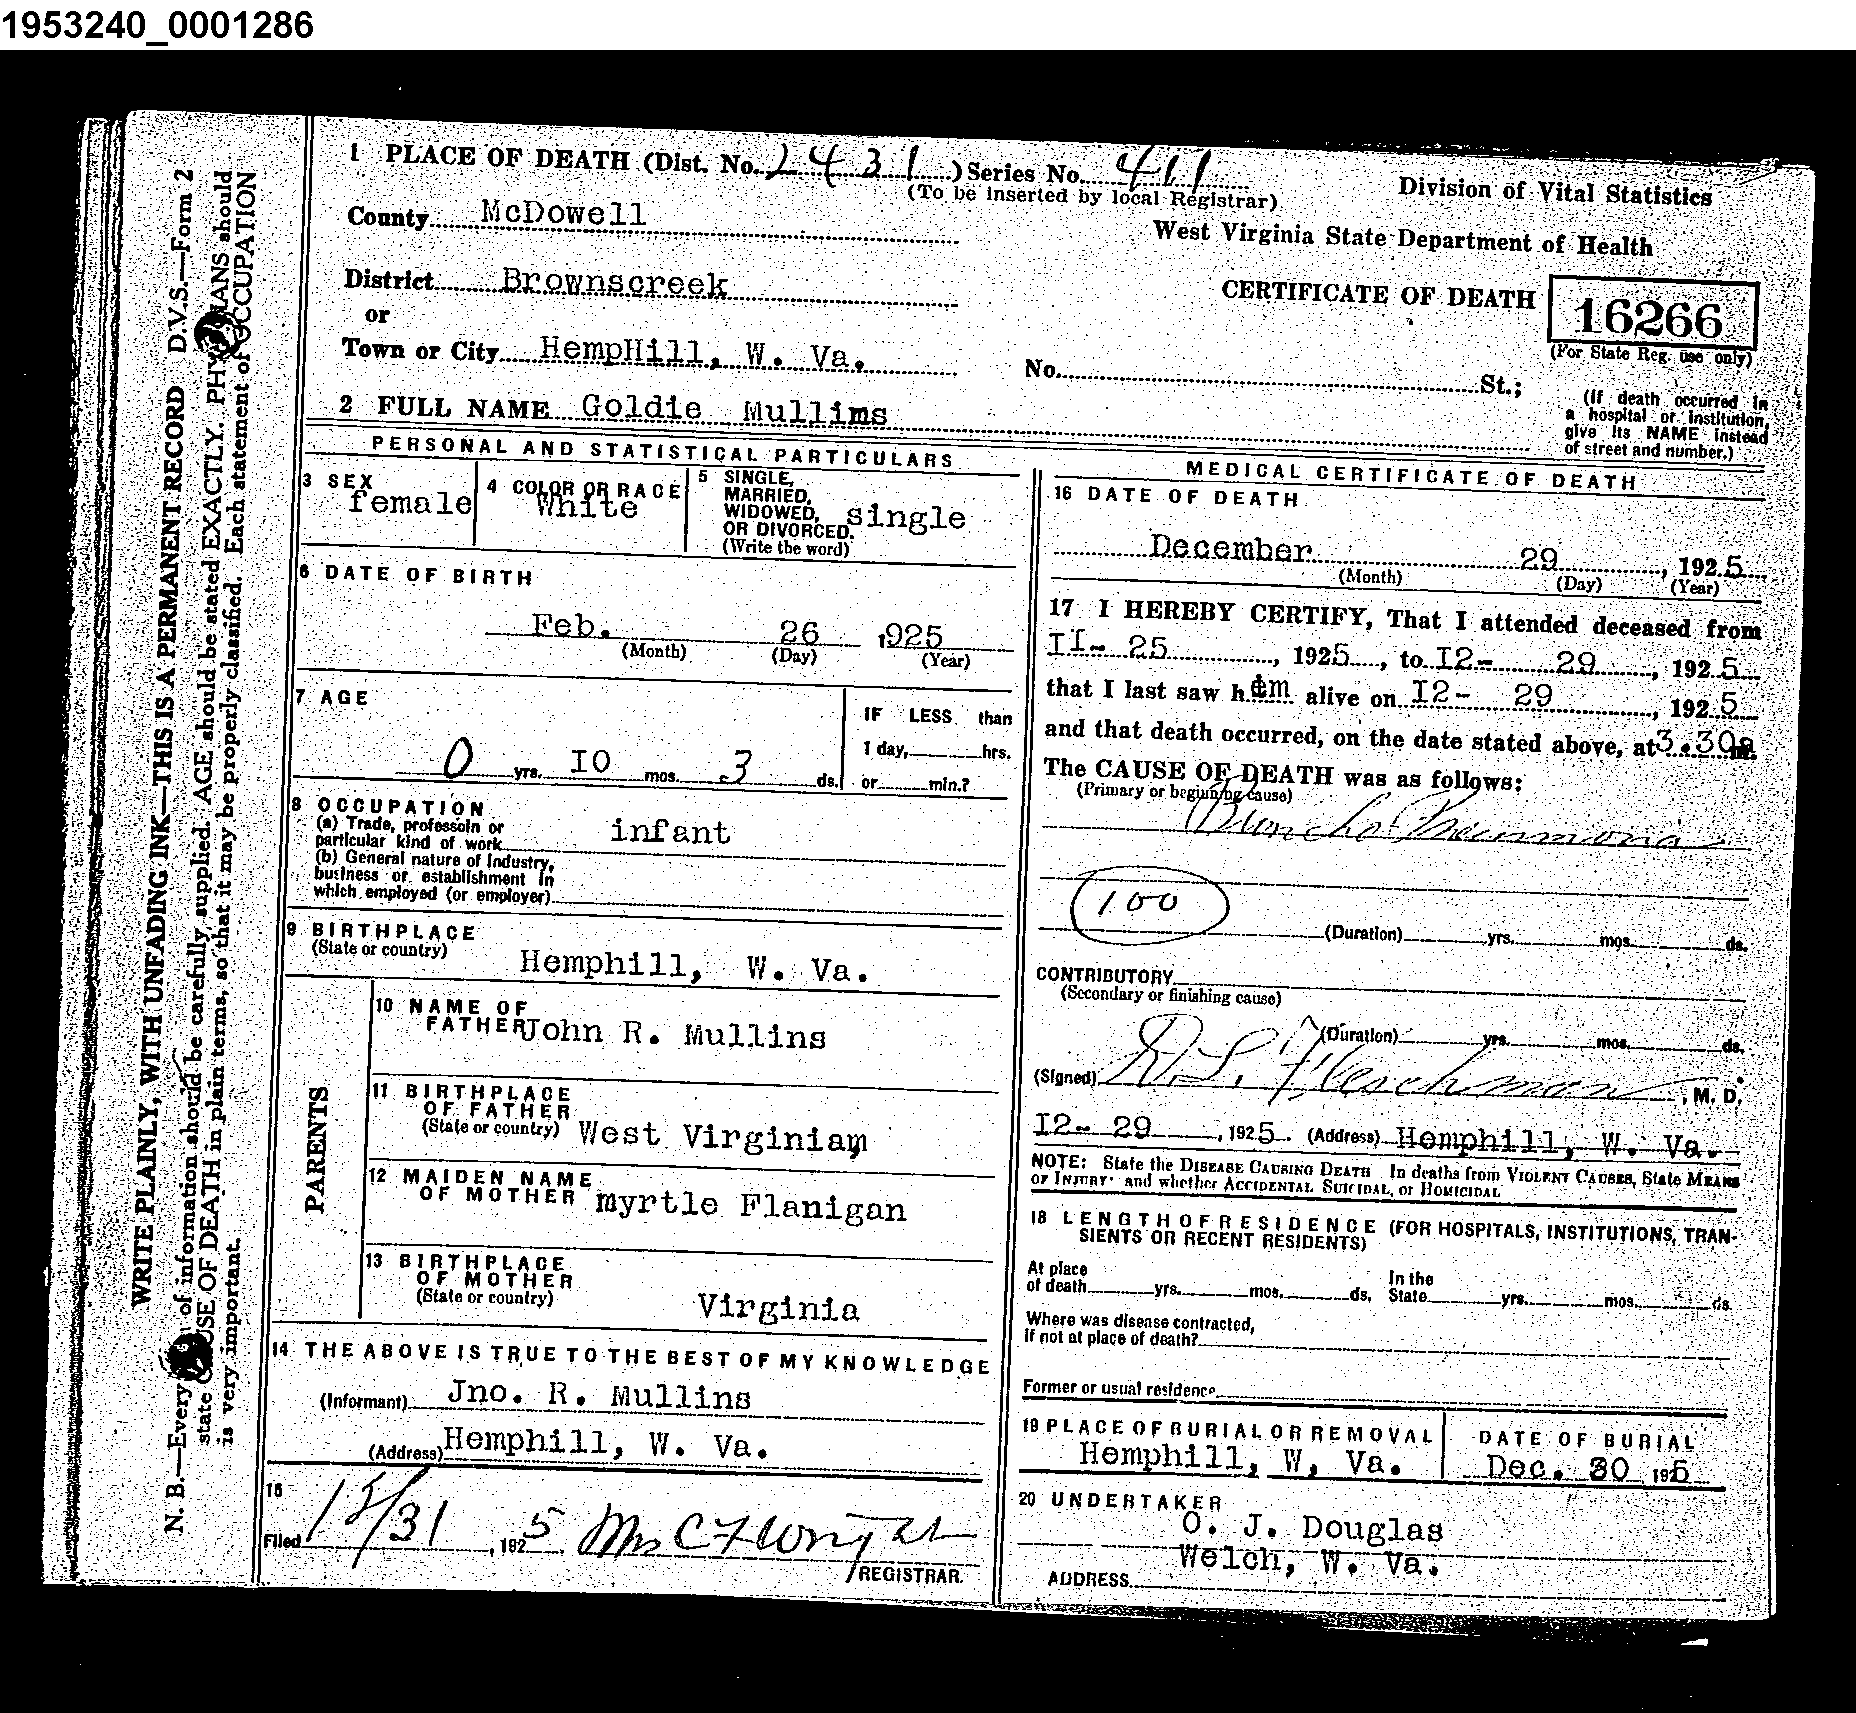 1953240_0001286
WRITE PLAINLY, WITH UNFADING INK—THIS IS A PERMANENT RECORD D.V.S.—Form 2
N. B.—Every of information should be carefully supplied. AGE should be stated EXACTLY. PHYSICIANS should
state CAUSE OF DEATH in plain terms, so that it may be properly classified. Each statement of OCCUPATION
is very important.
1 PLACE OF DEATH (Dist. No. 2431) Series No. 411
(To be inserted by local Registrar)
Division of Vital Statistics
County McDowell
West Virginia State Department of Health
District Brownscreek
CERTIFICATE OF DEATH 16266
or
(For State Reg. use only)
Town or City HempHill, W. Va.
No. St.;
(If death occurred in
a hospital or institution,
give its NAME instead
of street and number.)
2 FULL NAME Goldie Mullims
PERSONAL AND STATISTICAL PARTICULARS
3 SEX
female
4 COLOR OR RACE
White
5 SINGLE,
MARRIED,
WIDOWED,
OR DIVORCED.
(Write the word)
single
6 DATE OF BIRTH
Feb. 26 1925
(Month) (Day) (Year)
7 AGE
0 yrs. IO mos. 3 ds.
IF LESS than
1 day, hrs.
or min.?
8 OCCUPATION
(a) Trade, professoin or
particular kind of work
infant
(b) General nature of Industry,
business or establishment in
which employed (or employer)
9 BIRTHPLACE
(State or country)
Hemphill, W. Va.
PARENTS
10 NAME OF
FATHER John R. Mullins
11 BIRTHPLACE
OF FATHER
(State or country) West Virginiam
12 MAIDEN NAME
OF MOTHER myrtle Flanigan
13 BIRTHPLACE
OF MOTHER
(State or country)
Virginia
14 THE ABOVE IS TRUE TO THE BEST OF MY KNOWLEDGE
(Informant) Jno. R. Mullins
(Address) Hemphill, W. Va.
15
Filed 12/31, 1925 Mrs C F Wright
REGISTRAR.
MEDICAL CERTIFICATE OF DEATH
16 DATE OF DEATH
December 29, 1925
(Month) (Day) (Year)
17 I HEREBY CERTIFY, That I attended deceased from
II- 25, 1925, to I2- 29, 1925
that I last saw him alive on I2- 29, 1925
and that death occurred, on the date stated above, at 3.30a m.
The CAUSE OF DEATH was as follows:
(Primary or beginning cause)
Broncho Pneumonia
100
(Duration) yrs. mos. ds.
CONTRIBUTORY
(Secondary or finishing cause)
(Duration) yrs. mos. ds.
(Signed) D.L. Fleschman, M. D.
I2- 29, 1925. (Address) Hemphill, W. Va.
NOTE: State the DISEASE CAUSING DEATH In deaths from VIOLENT CAUSES, State MEANS
OF INJURY and whether ACCIDENTAL SUICIDAL, or HOMICIDAL
18 LENGTH OF RESIDENCE (FOR HOSPITALS, INSTITUTIONS, TRAN-
SIENTS OR RECENT RESIDENTS)
At place
of death yrs. mos. ds.
In the
State yrs. mos. ds.
Where was disease contracted,
if not at place of death?
Former or usual residence
19 PLACE OF BURIAL OR REMOVAL
Hemphill, W, Va.
DATE OF BURIAL
Dec. 30 1925
20 UNDERTAKER
O. J. Douglas
Welch, W. Va.
ADDRESS